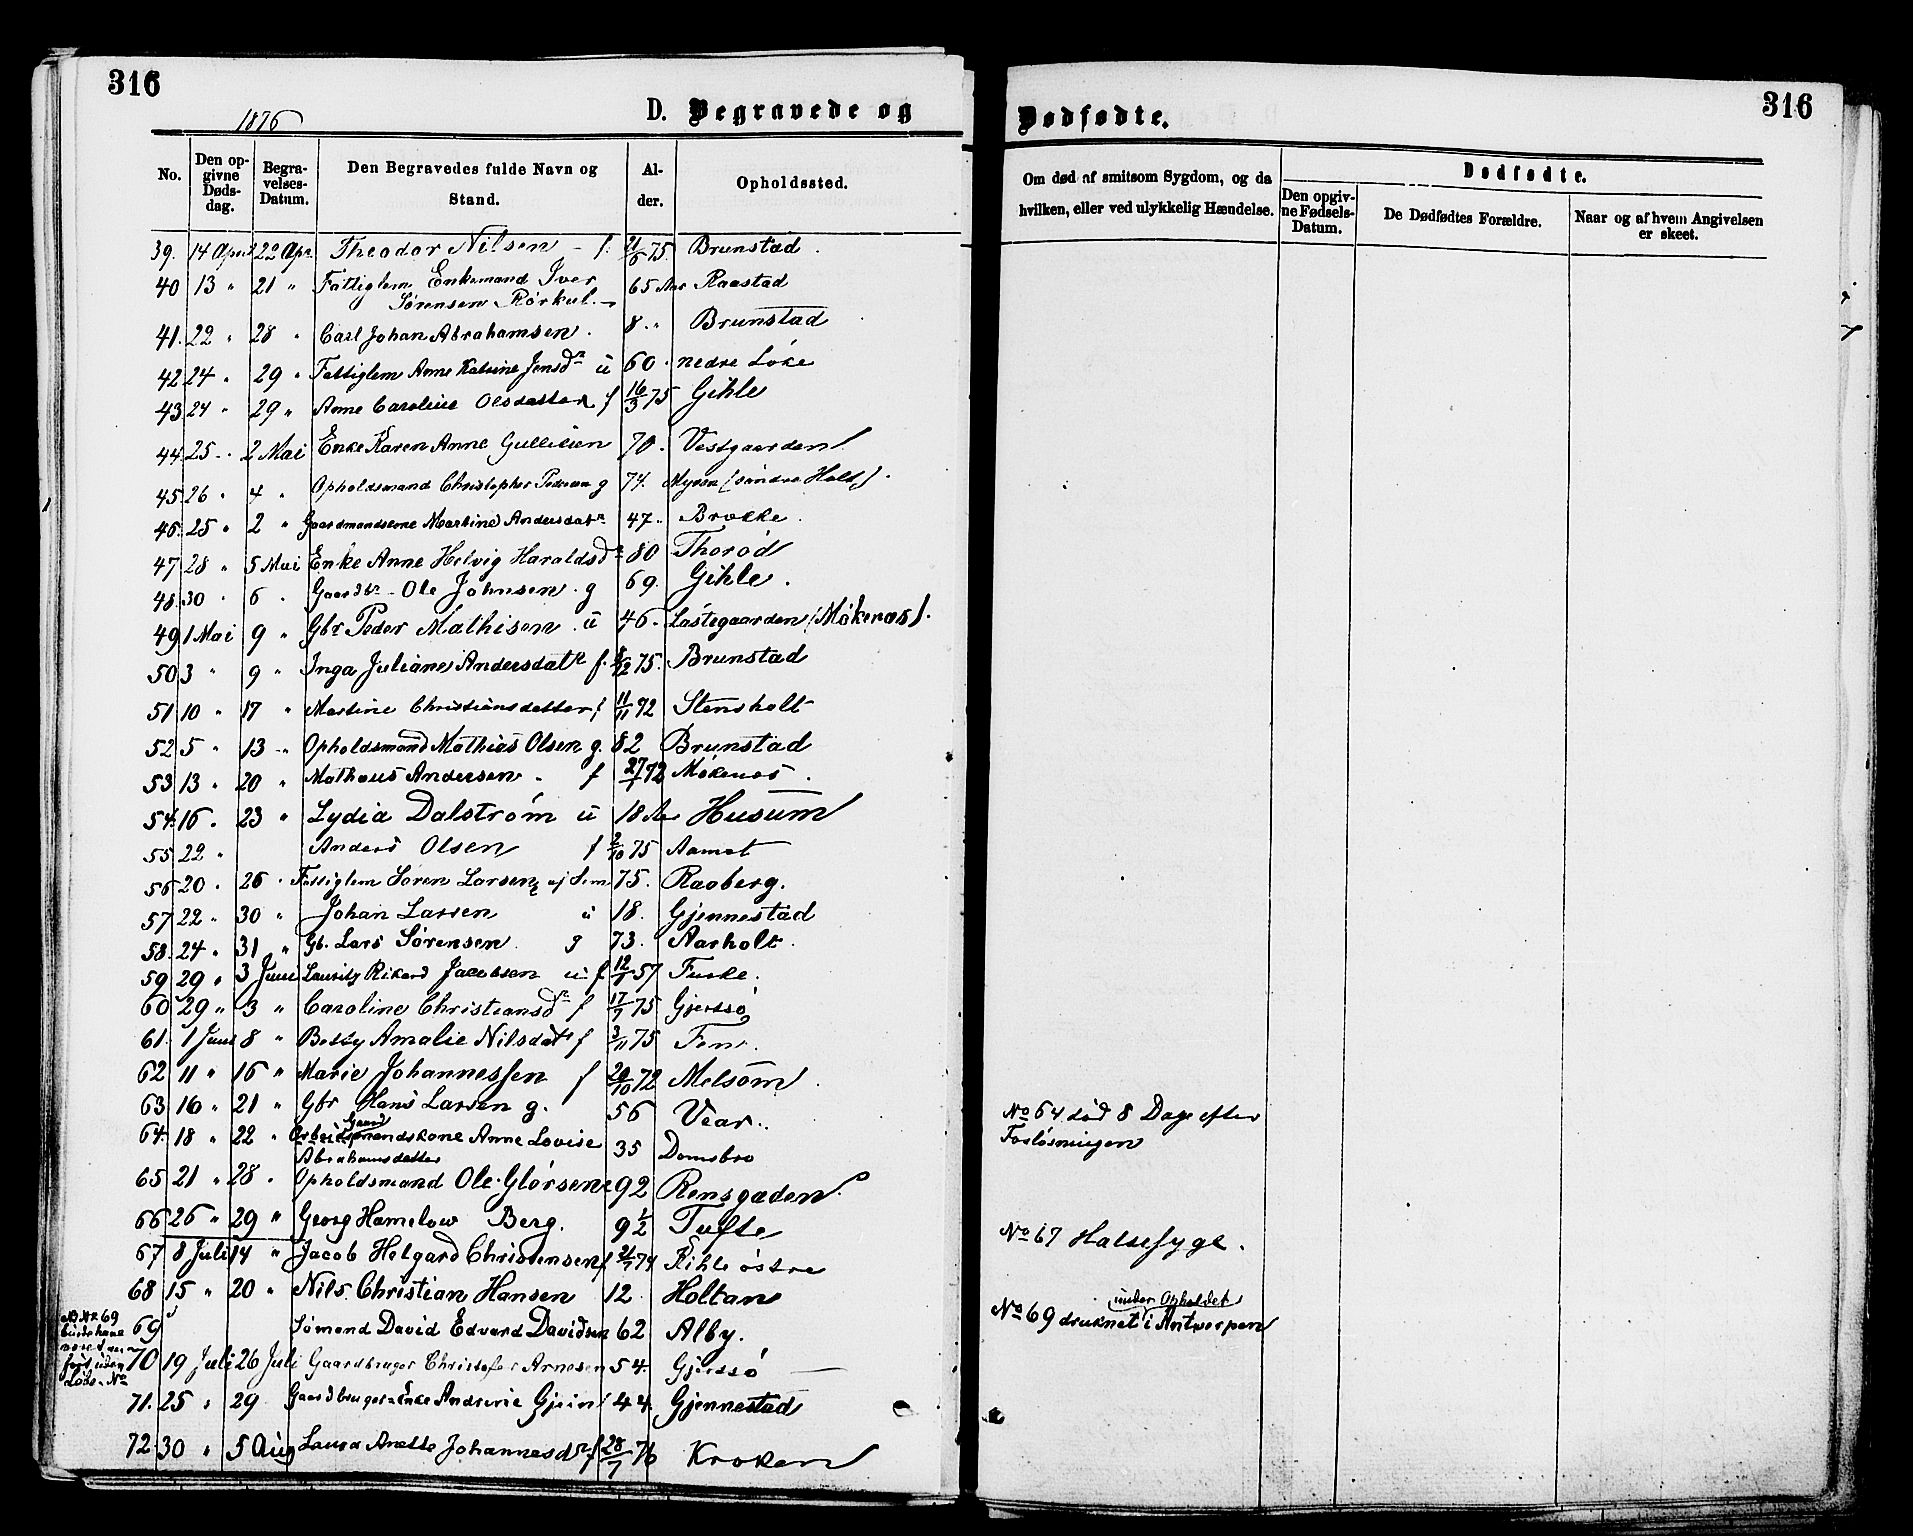 316
316
1876
D. Begravede og Dødfødte.
No. Den opgivne Dødsdag. Begravelses-Datum. Den Begravedes fulde Navn og Stand. Alder. Opholdssted. Om død af smitsom Sygdom, og da hvilken, eller ved ulykkelig Hændelse. Dødfødte. Den opgivne Fødsels-Datum. De Dødfødtes Forældre. Naar og af hvem Angivelsen er skeet.
39. 14 April 22 Apr. Theodor Nilsen - f. 21/6 75. Brunstad.
40 13 " 21 " Fattiglem Enkemand Iver
Sørensen Rørkul. 65 Aar Raastad
41. 22 " 28 " Carl Johan Abrahamsen. 8 " Brunstad
42 24 " 29 " Fattiglem Anne Katrine Jensdr u 60. nedre Løke
43 24 " 29 " Anne Caroline Olsdatter f 16/3 75 Gihle
44 25 " 2 Mai Enke Karen Anne Gulliksen 70. Vestgaarden
45 26 " 4 " Opholdsmand Christopher Pedersen g 74. Myren (søndre Holt).
46. 25 " 2 " Gaardmandskone Martine Andersdatr 47 " Brække.
47 28 " 5 Mai Enke Anne Helvig Haraldsdr 80 Thorød
48. 30 " 6 " Gaardbr. Ole Johnsen. g 69. Gihle.
49 1 Mai 9 " Gbr Peder Mathisen u 46. Løstegaarden (Møkenæs).
50 3 " 9 " Inga Juliane Andersdatr f. 12 75. Brunstad
51 10 " 17 " Martine Christiansdatter f 11/11 72 Stensholt
52 5 " 13 " Opholdsmand Mathias Olsen g. 82 Brunstad
53 13 " 20 " Mathæus Andersen. f 27/1 72 Møkenæs.
54. 16. 23 " Lydia Dalstrøm u 18 Aar Husum
55 22 " Anders Olsen f 2/10 75 Aamot
56 20. 26. Fattiglem Søren Larsen, af Sem 75. Raaberg.
57 22 " 30 " Johan Larsen u 18. Gjennestad
58. 24 " 31 " Gb. Lars Sørensen. g 73. Aarholt.
59 29 " 3 Juni Lauritz Rikard Jacobsen u. f 12/1 57 Furke.
60 29 " 3 " Caroline Christiansdr f 17/7 75 Gjerssø
61. 1 Juni 8 " Betsy Amalie Nilsdatr f 3/11 75 Fen.
62 11 " 16 " Marie Johannessen f 20/10 72 Melsom.
63 16 " 21 " Gbr Hans Larsen g. 56 Vear.
64. 18 " 22 " Gaard
Arbeidsmandskone Anne Lovise
Abrahamsdatter 35 Domsbro
No 64 død 8 Dage efter
Forløsningen
65 21 " 28. Opholdsmand Ole Glørsen 92 Rensgaden.
66 26 " 29 " Georg Hamelow Berg. 9 1/2 Tufte
67 8 Juli 14 " Jacob Helgard Christensen f 21/7 74 Kihle østre
No 67 Halsesyge.
68 15 " 20 " Nils Christian Hansen 12 Holtan
69 Sømand David Edvard Davidsen 62 Alby.
under Opholdet
No 69 druknet i Antwerpen
NB No 69
burde have
været anført uden
Løbe-No
70 19 Juli 26 Juli Gaardbruger Christofer Arnesen 54. Gjerssø
71. 25 " 29 Gaardbruger-Enke Andrine Gjein 44. Gjennestad
72. 30 " 5 Aug Laura Anette Johannesdr f 28/7 76 Kroken